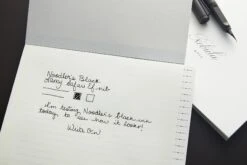 Noodler's Black
Lamy Safari EF nib
I'm testing Noodler's Black ink
today to see how it looks!
Write On